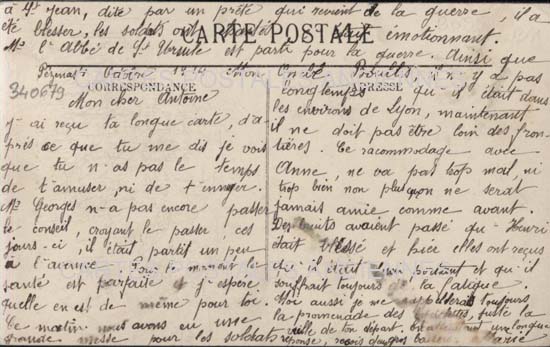 à St Jean, dite par un prêtre qui revient de la guerre, il a
été blesser, les soldats ont émotionnant.
Mr l'Abbé de Ste Ursule est parti pour la guerre. Ainsi que
CARTE POSTALE
CORRESPONDANCE
ADRESSE
340679
Pézenas
Mon cher Antoine
j-ai reçu ta longue carte, d'a-
près ce que tu me dis je vois
que tu n-as pas le temps
de t'amuser, ni de t-ennuyer.
Mr Georges n-a pas encore passer
le conseil, croyant le passer ces
jours-ci, il était partit un peu
à l'avance. Pour le moment la
santé est parfaite et j-espère,
qu'elle en est de même pour toi.
Ce matin nous avons eu une
grande messe pour les soldats
Mon Oncle il n-y a pas
longtemps qu'il était dans
les environs de Lyon, maintenant
il ne doit pas être loin des fron-
tières. Ce racommodage avec
Anne, ne va pas trop mal, ni
trop bien non plus qu'on ne serat
jamais amie comme avant.
Des bruits avaient passé qu-Henri
était blessé et hier elles ont reçus
qu-il était bien portant et qu-il
souffrait toujours de la fatigue.
Moi aussi je me rappellerais toujours
la promenade des juste la
ville de ton départ. une longue
réponse, reçois des gros baisers